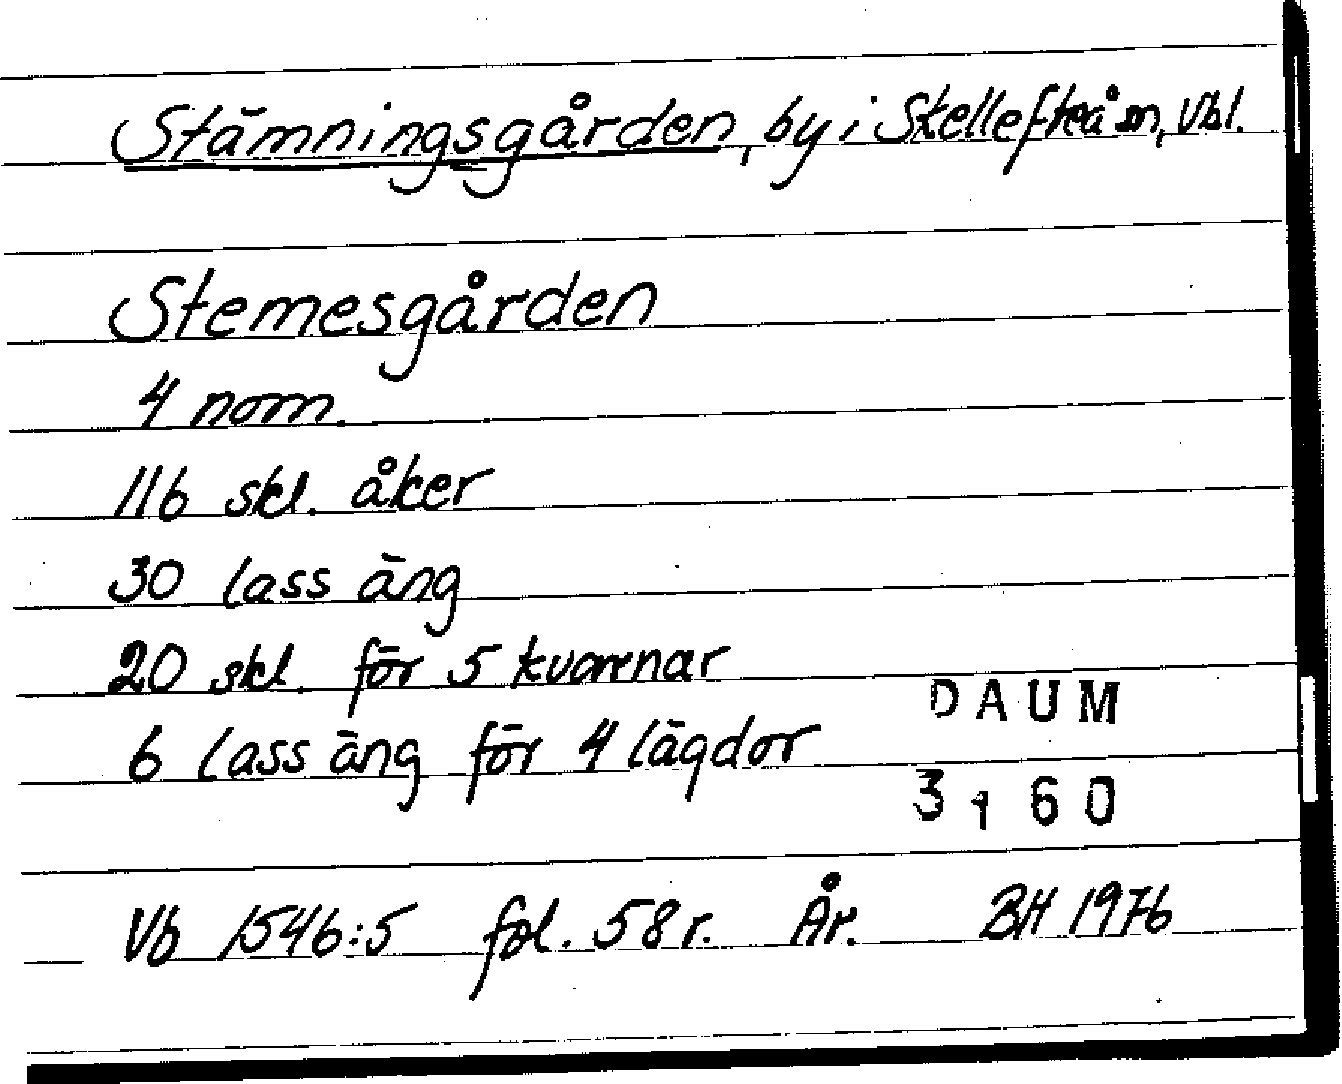 Stämningsgården, by i Skellefteå sn, Vbl.
Stemesgården
4 nom.
116 skl. åker
30 lass äng
20 skl. för 5 kvarnar
6 lass äng för 4 lägdor
DAUM
3160
Vb 1546:5 fol. 58 r. År. BH 1976